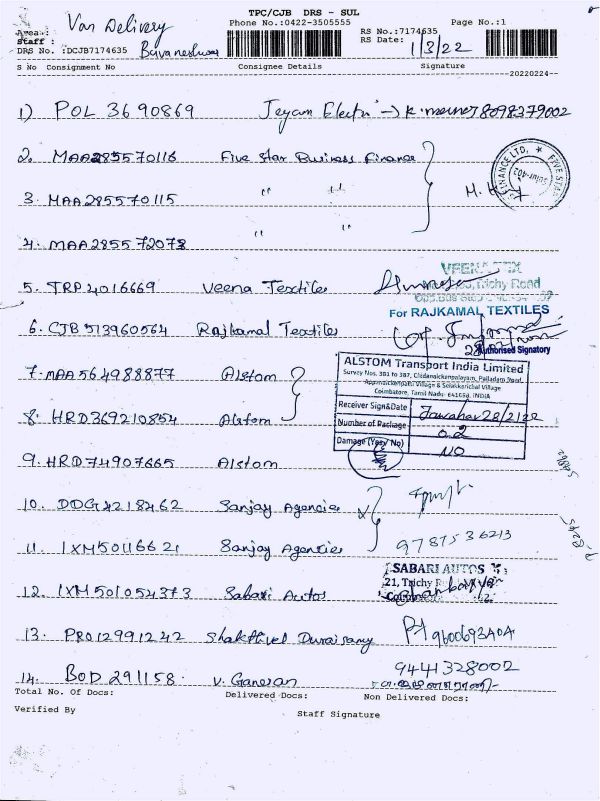 TPC/CJB DRS - SUL
Van Delivery Phone No.:0422-3505555 Page No.:1
Area:
Staff : Buvaneshwar RS No.:7174635
DRS No. :DCJB7174635 RS Date: 1/3/22
S No Consignment No Consignee Details Signature
20220224
1) POL 3690869 Jeyam Electri 8098379002
2. MAA285570116 Five Star Business Finance
3. MAA285570115 " "
4. MAA285572073 " "
FINANCE LTD, * FIVE STAR
VEENA TEX
Trichy Road
5. TRP4016669 Veena Textiles
For RAJKAMAL TEXTILES
6. CJB513960564 Rajkamal Textiles
Authorised Signatory
ALSTOM Transport India Limited
Survey Nos. 381 to 387, Chidanaickanpalayam, Palladam Road,
Appanaickenpatti Village & Selakkarichal Village
Coimbatore, Tamil Nadu- 641658, INDIA
7. MAA564988877 Alstom
Receiver Sign&Date Jawahar 28/2/22
8. HRD369210854 Alstom
Number of Package 02
Damage (Yes/ No) NO
9. HRD74907665 Alstom
10. DDG4218462 Sanjay Agencies
11. IXM50116621 Sanjay Agencies 9787536213
SABARI AUTOS
21, Trichy
12. IXM501054373 Sabari Autos
13. PRO12991242 Shakthivel Duraisamy 960069340A
14. BOD 291158. V. Ganesan 9441328002
Total No. Of Docs: Delivered Docs: Non Delivered Docs:
Verified By Staff Signature